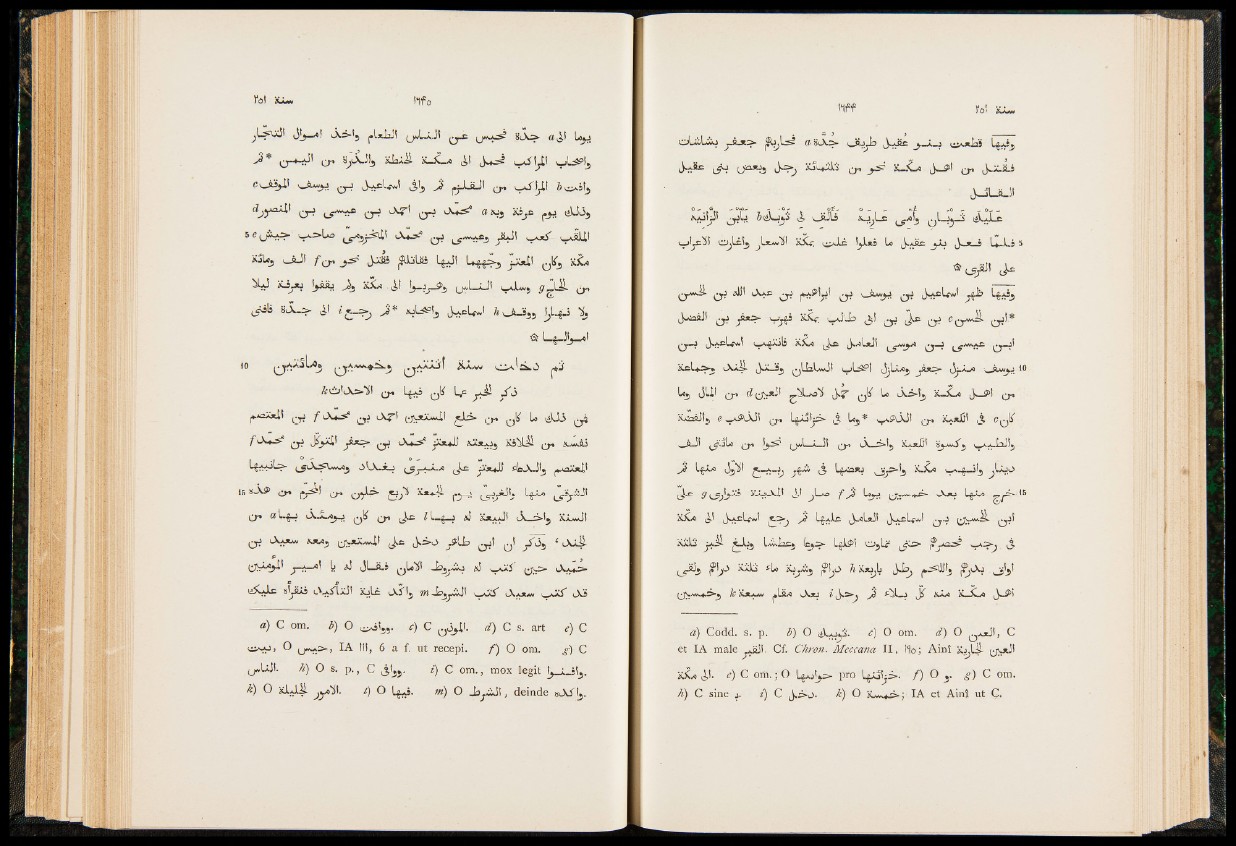 سنة ٢٥١ ١٦۴۴
وفيها قطعت بنو عقيل طريق جدّة a فحاربهم جعفر بشاشات
فقُتل من اهل مكّة نحو من ثلثمائة رجل وبعض بنى عقيل
القائل
عَلَيْكَ ثَوْبانِ وأُمِّى عارِيَهْ فَأَلْقِ لى ثَوْبَكَ b يَٱبْنَ الزَّانِيَهْ
فلمّا فعل بنو عقيل ما فعلوا غلت بمكّة الاسعار واغارت الاعراب 5
على القرى ۞
وفيها ظهر اسماعيل بن يوسف بن ابراهيم بن عبد الله بن الحسن
*ابن الحسن c بن علىّ بن ابى طالب بمكّة فهرب جعفر بن الفضل
ابن عيسى بن موسى العامل على مكّة فانتهب اسماعيل بن
يوسف منزل جعفر ومنازل اصحاب السلطان وقتل الجند وجماعة 10
من اهل مكّة واخذ ما كان حُمل لاصلاح العين d من المال وما
كان e فى الكعبة من الذهب *وما فى خزائنها من الذهب e والفضّة
والطيب وكسوة الكعبة واخذ من الناس نحوا من مائتى الف
دينار وانهب مكّة واحرق بعضها فى شهر ربيع الأوّل منها ثم
خرج منها بعد خمسين يوما ثم f سار الى المدينة فتوارى g علىّ 15
ابن الحسين بن اسماعيل العامل عليها ثم رجع اسماعيل الى مكّة
فى رجب فحصرهم حتى تماوت اهلها جوعا وعطشا وبلغ الخبز ثلثة
اواق بدرهم واللحم رطل باربعة h دراهم وشربة ماء ثلثة دراهم ولقى
اهل مكّة منه كلّ بلاء ثم رحل i بعد مقام سبعة k وخمسين
a) Codd. s. p. b) O ثوبيك. c) O om. d) O العين, C
et IA male القبر. Cf. Chron. Meccana II, ١٩٥; Ainî العين الجارية
الى مكة. e) C om.; O حوانها pro خزائنها. f) O و. g) C om.
h) C sine ب. i) C دخل. k) O خمسة; IA et Ainî ut C.
سنة ٢٥١ ١٦۴٥
يوما الى a جدّة فحبس عن الناس الطعام واخذ اموال التجّار
واصحاب المراكب فحمل الى مكّة الحنطة والذرة من اليمن *ثم
وافت b المراكب من القلزم ثم وافى اسماعيل بن يوسف الموقف c
وذلك يوم عرفة وبه a محمّد بن احمد بن عيسى بن المنصور d
الملقّب كعب البقر وعيسى بن محمّد المخزومىّ صاحب جيش e 5
مكّة وكان المعتزّ وجّههما اليها فقاتلهم فقُتل نحو من f الف ومائة
من الحاجّ g وسلب الناس وهربوا الى مكّة ولم يقفوا بعرفة ليلا
ولا نهارا ووقف h اسماعيل واصحابه *ثم رجع i الى جدّة فافنى
اموالها ۞
ثم دخلت سنة اثنتين وخمسين ومائتين 10
ذكر الخبر عما كان فيها من الاحداث k
فمن ذلك ما كان من خلع المستعين احمد بن محمّد f بن المعتصم
نفسه من الخلافة وبيعته للمعتزّ محمّد بن جعفر المتوكّل بن محمّد f
المعتصم والدعاء للمعتزّ على منبرى بغداد ومسجدى جانبيها
الشرقىّ والغربىّ منها يوم الجمعة لاربع خلون من المحرّم من هذه 15
السنة واخذ البيعة له بها l على من كان يومئذ بها a من
الجند، وذكر ان ابن طاهر دخل على المستعين ومعه سعيد بن
حُميد حين كتب له بشروط الامان فقال له يا امير المؤمنين
قد كتب سعيد كتاب الشروط m واكّد غاية التأكيد فنقرأه عليك
a) C om. b) O ووافت. c) C الموذن. d) C s. art e) C
بيت, O حيس, IA III, 6 a f. ut recepi. f) O om. g) C
الناس. h) O s. p., C ووافى. i) C om., mox legit وافنوا.
k) O الامور الجليلة. l) O فيها. m) O الشرط, deinde واكده.